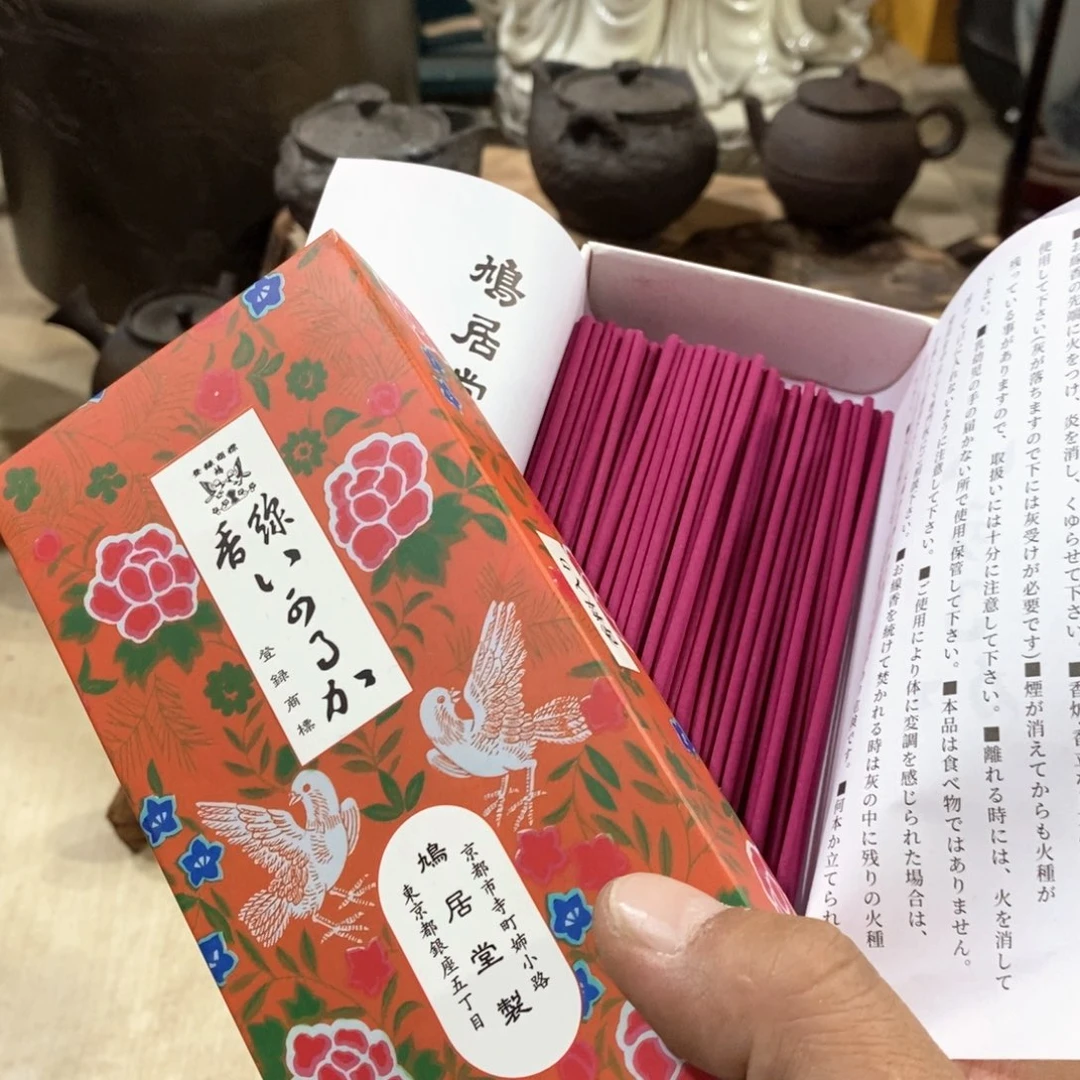 登録商標
線香
いのるか
登録商標
京都市寺町姉小路
鳩居堂製
東京都銀座五丁目
鳩居堂
■お線香の先端に火をつけ、炎を消し、くゆらせて下さ
使用して下さい(灰が落ちますので下には灰受けが必要です)■煙が消えてからも火種が
残っている事がありますので、取扱いには十分に注意して下さい。■離れる時には、火を消して
下さい。■幼児の手の届かない所で使用・保管して下さい。■本品は食べ物ではありません。
ように注意して下さい。■ご使用により体に変調を感じられた場合は、
■お線香を続けて焚かれる時は灰の中に残りの火種
■何本か立てられ